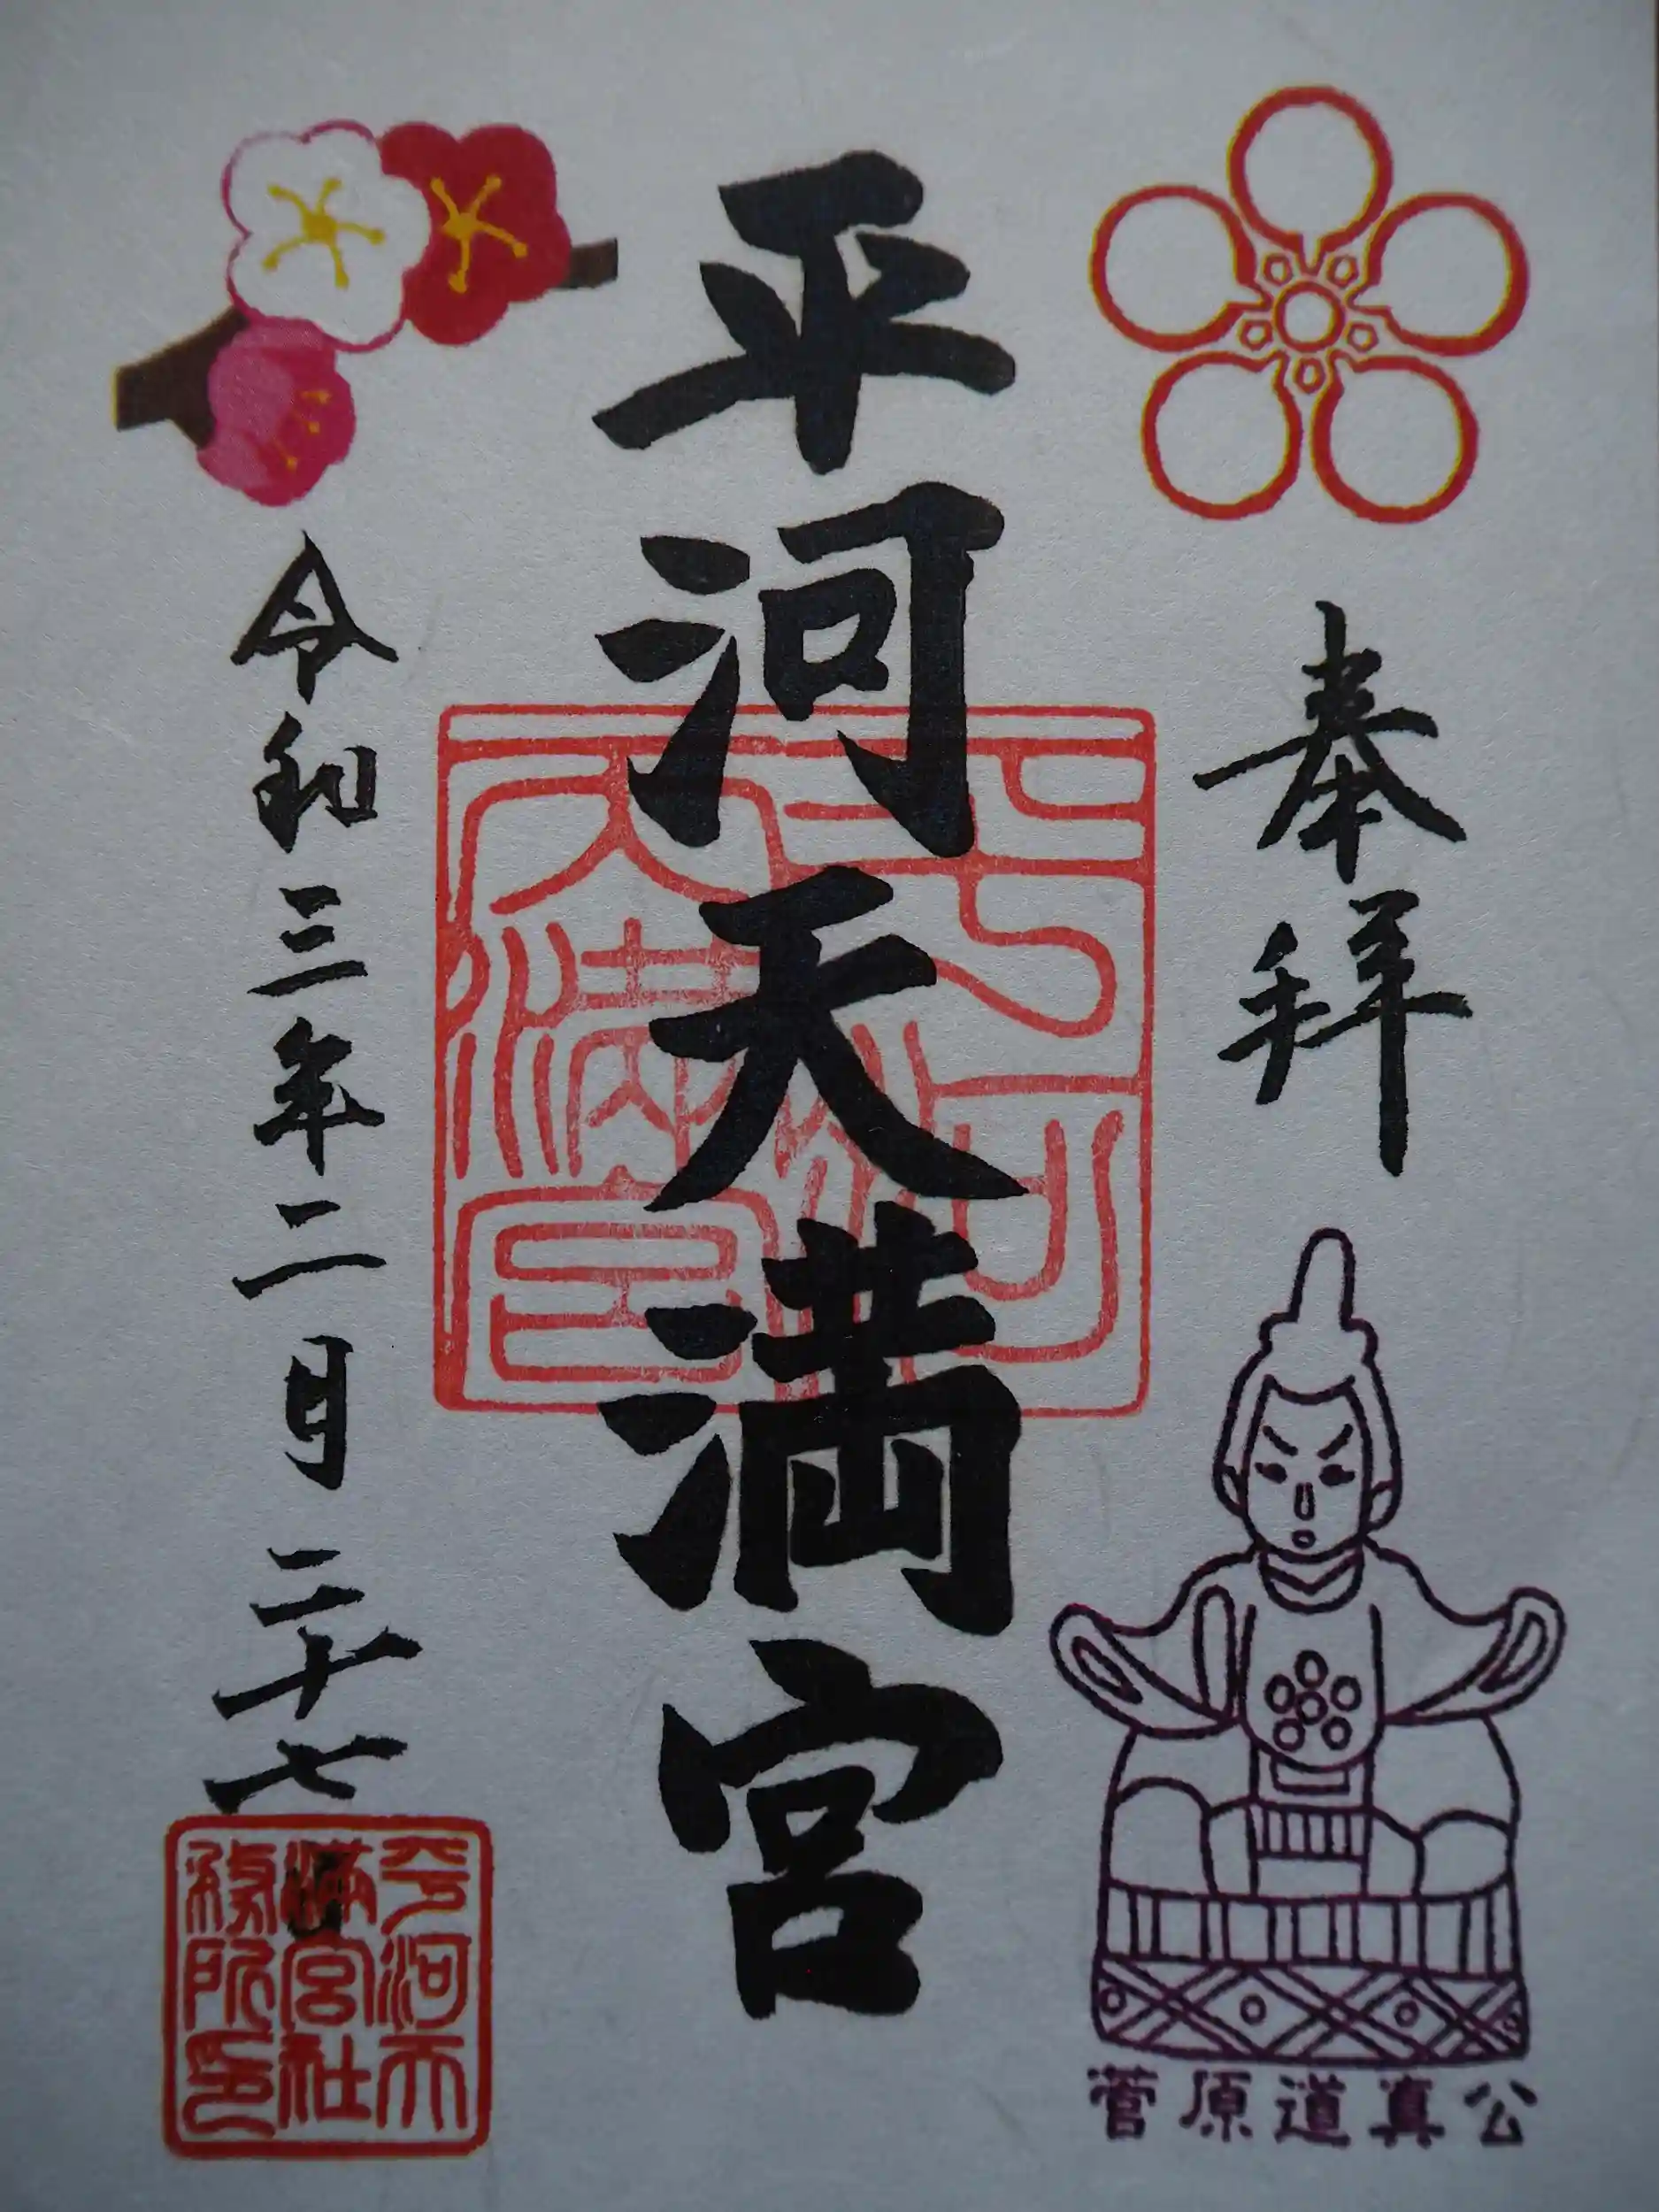 奉拝
菅原道真公
平河天満宮
平河天満宮
令和三年二月二十七日
平河天
満宮社
務所印